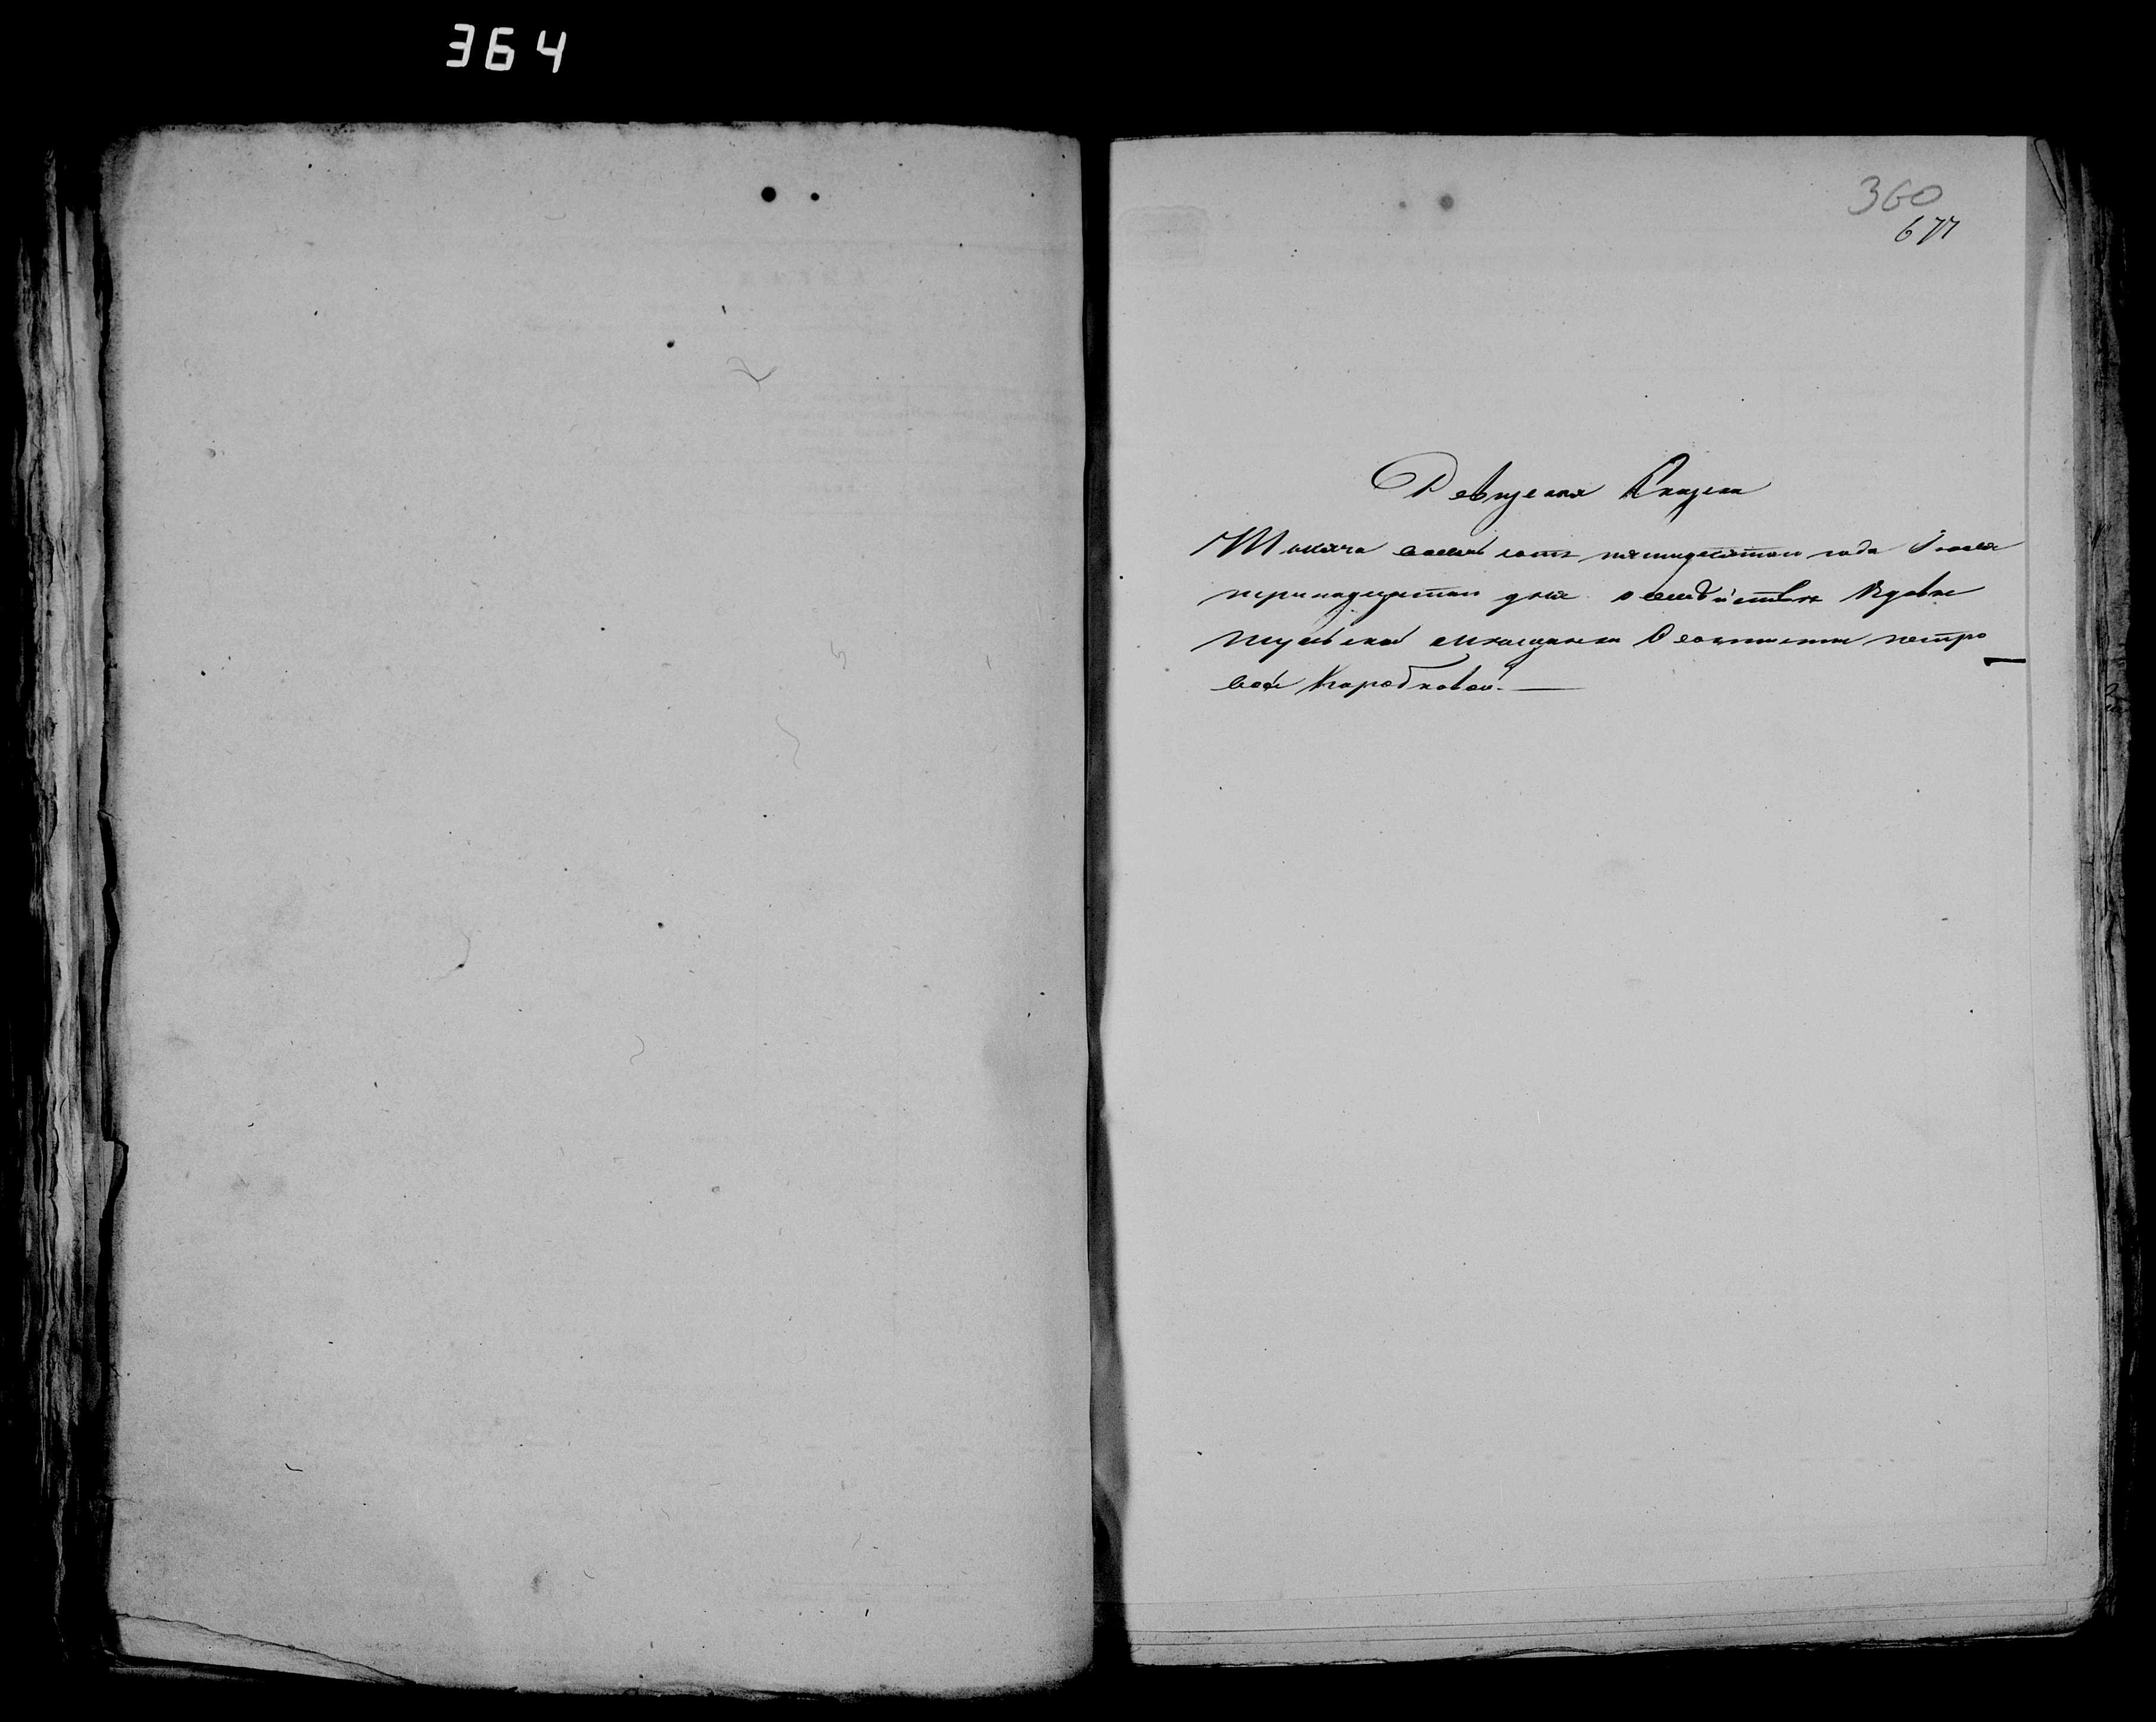 364
360
677
Ревизская Сказка
Тысяча восемь сотъ пятидесятого года Iюля
тринадцатого дня о семействе Вдове
тульской мещанки петро
вой Коробковой.